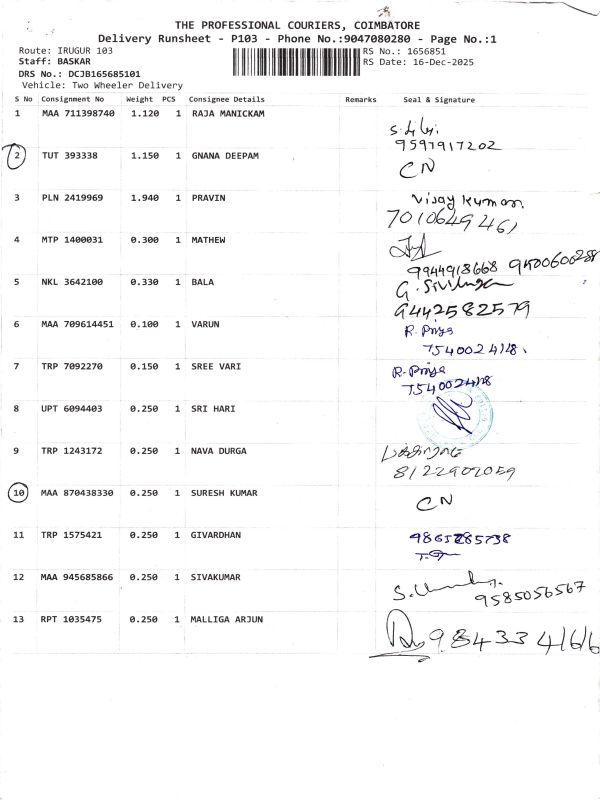 THE PROFESSIONAL COURIERS, COIMBATORE
Delivery Runsheet - P103 - Phone No.:9047080280 - Page No.:1
Route: IRUGUR 103
RS No.: 1656851
Staff: BASKAR
RS Date: 16-Dec-2025
DRS No.: DCJB165685101
Vehicle: Two Wheeler Delivery
S No Consignment No Weight PCS Consignee Details Remarks Seal & Signature
1 MAA 711398740 1.120 1 RAJA MANICKAM
9597917202
2 TUT 393338 1.150 1 GNANA DEEPAM
CN
3 PLN 2419969 1.940 1 PRAVIN Vijay Kumar.
7010649461
4 MTP 1400031 0.300 1 MATHEW
9944918668
5 NKL 3642100 0.330 1 BALA
9442582579
6 MAA 709614451 0.100 1 VARUN R. Priya
7540024118.
7 TRP 7092270 0.150 1 SREE VARI R. Priya
7540024118
8 UPT 6094403 0.250 1 SRI HARI
9 TRP 1243172 0.250 1 NAVA DURGA
8122902059
10 MAA 870438330 0.250 1 SURESH KUMAR
CN
11 TRP 1575421 0.250 1 GIVARDHAN
12 MAA 945685866 0.250 1 SIVAKUMAR
9585056567
13 RPT 1035475 0.250 1 MALLIGA ARJUN